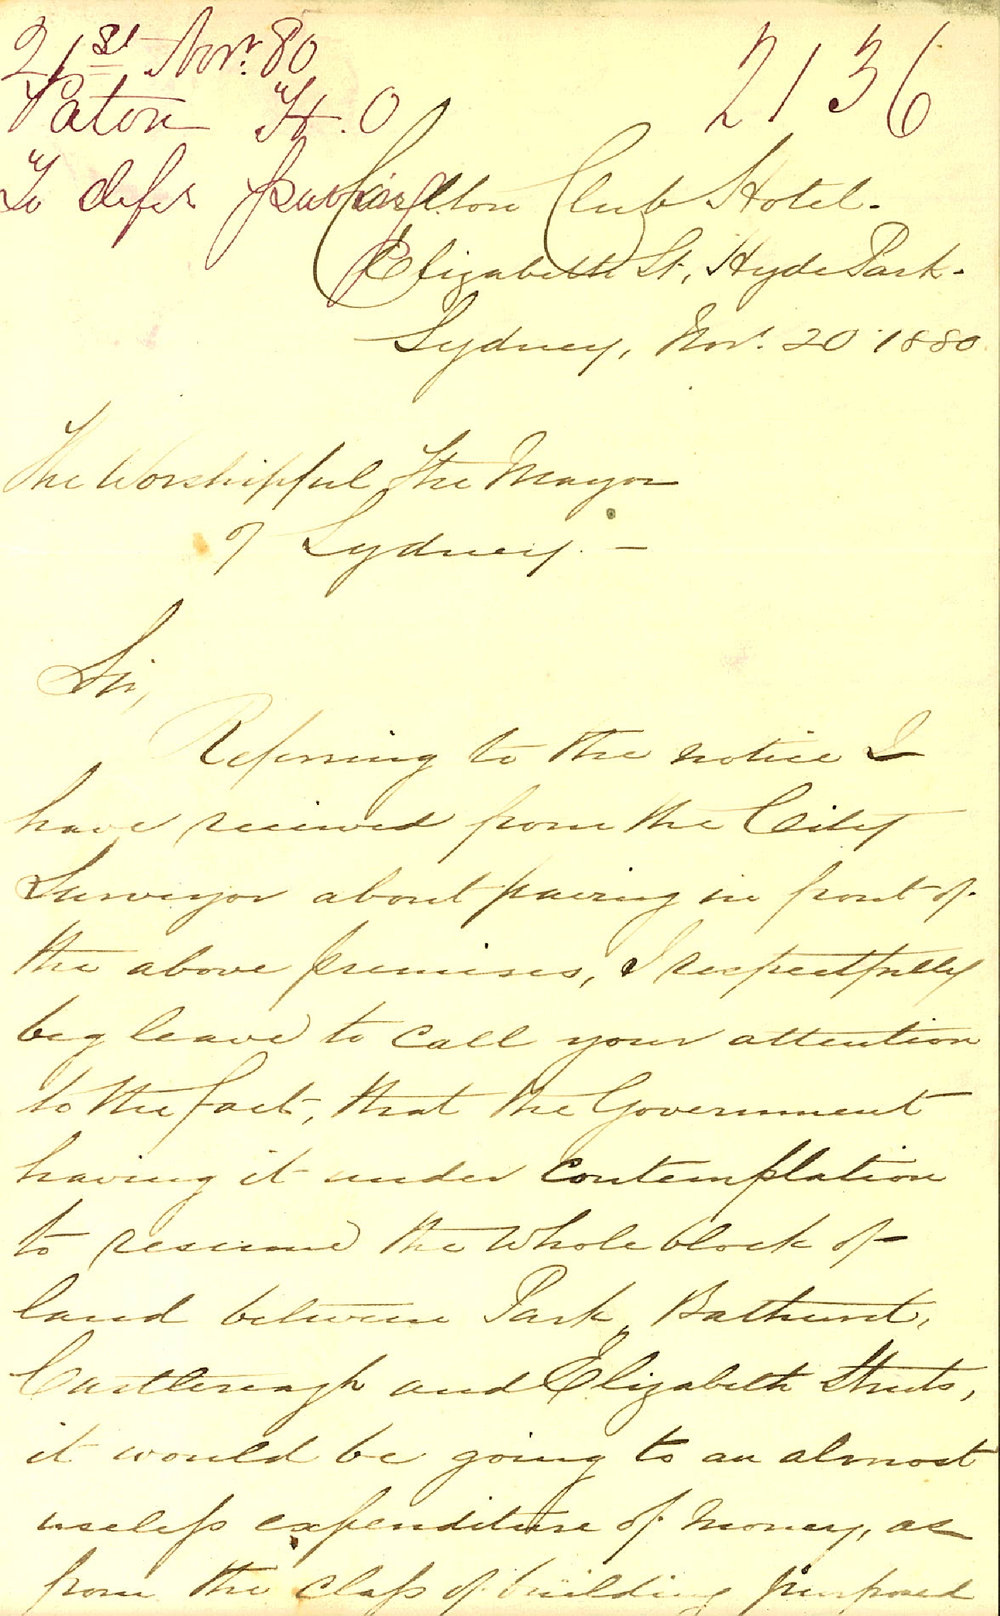 21st Novr. 80
2136
Paton H. O
To defer paving
Carlton Club Hotel.
Elizabeth St, Hyde Park.
Sydney, Novr. 20 1880
The Worshipful the Mayor
of Sydney. —
Sir,
Referring to the notice I
have received from the City
Surveyor about paving in front of
the above premises, I respectfully
beg leave to call your attention
to the fact, that the Government
having it under contemplation
to resume the whole block of
land between Park, Bathurst,
Castlereagh and Elizabeth Streets,
it would be going to an almost
useless expenditure of money, as
from the class of building purposed